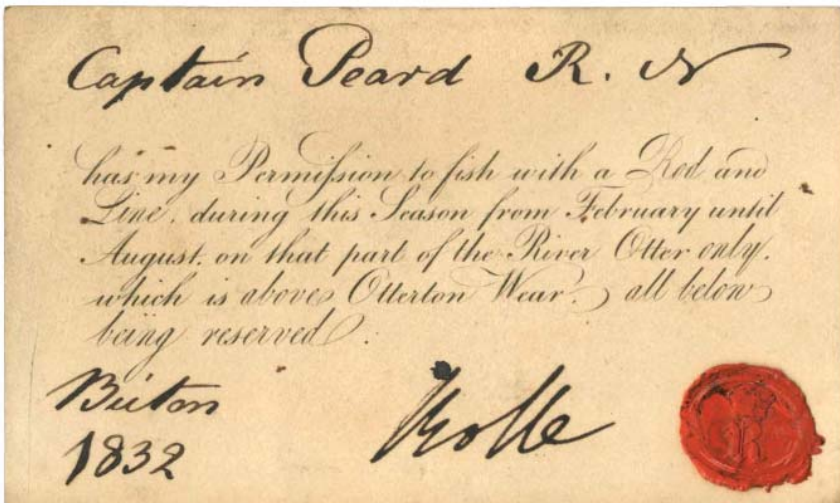 Captain Peard R. N
has my Permiſsion to fish with a Rod and
Line, during this Season from February until
August, on that part of the River Otter only,
which is above Otterton Wear, all below
being reserved.
Bicton
1832
Rolle
R